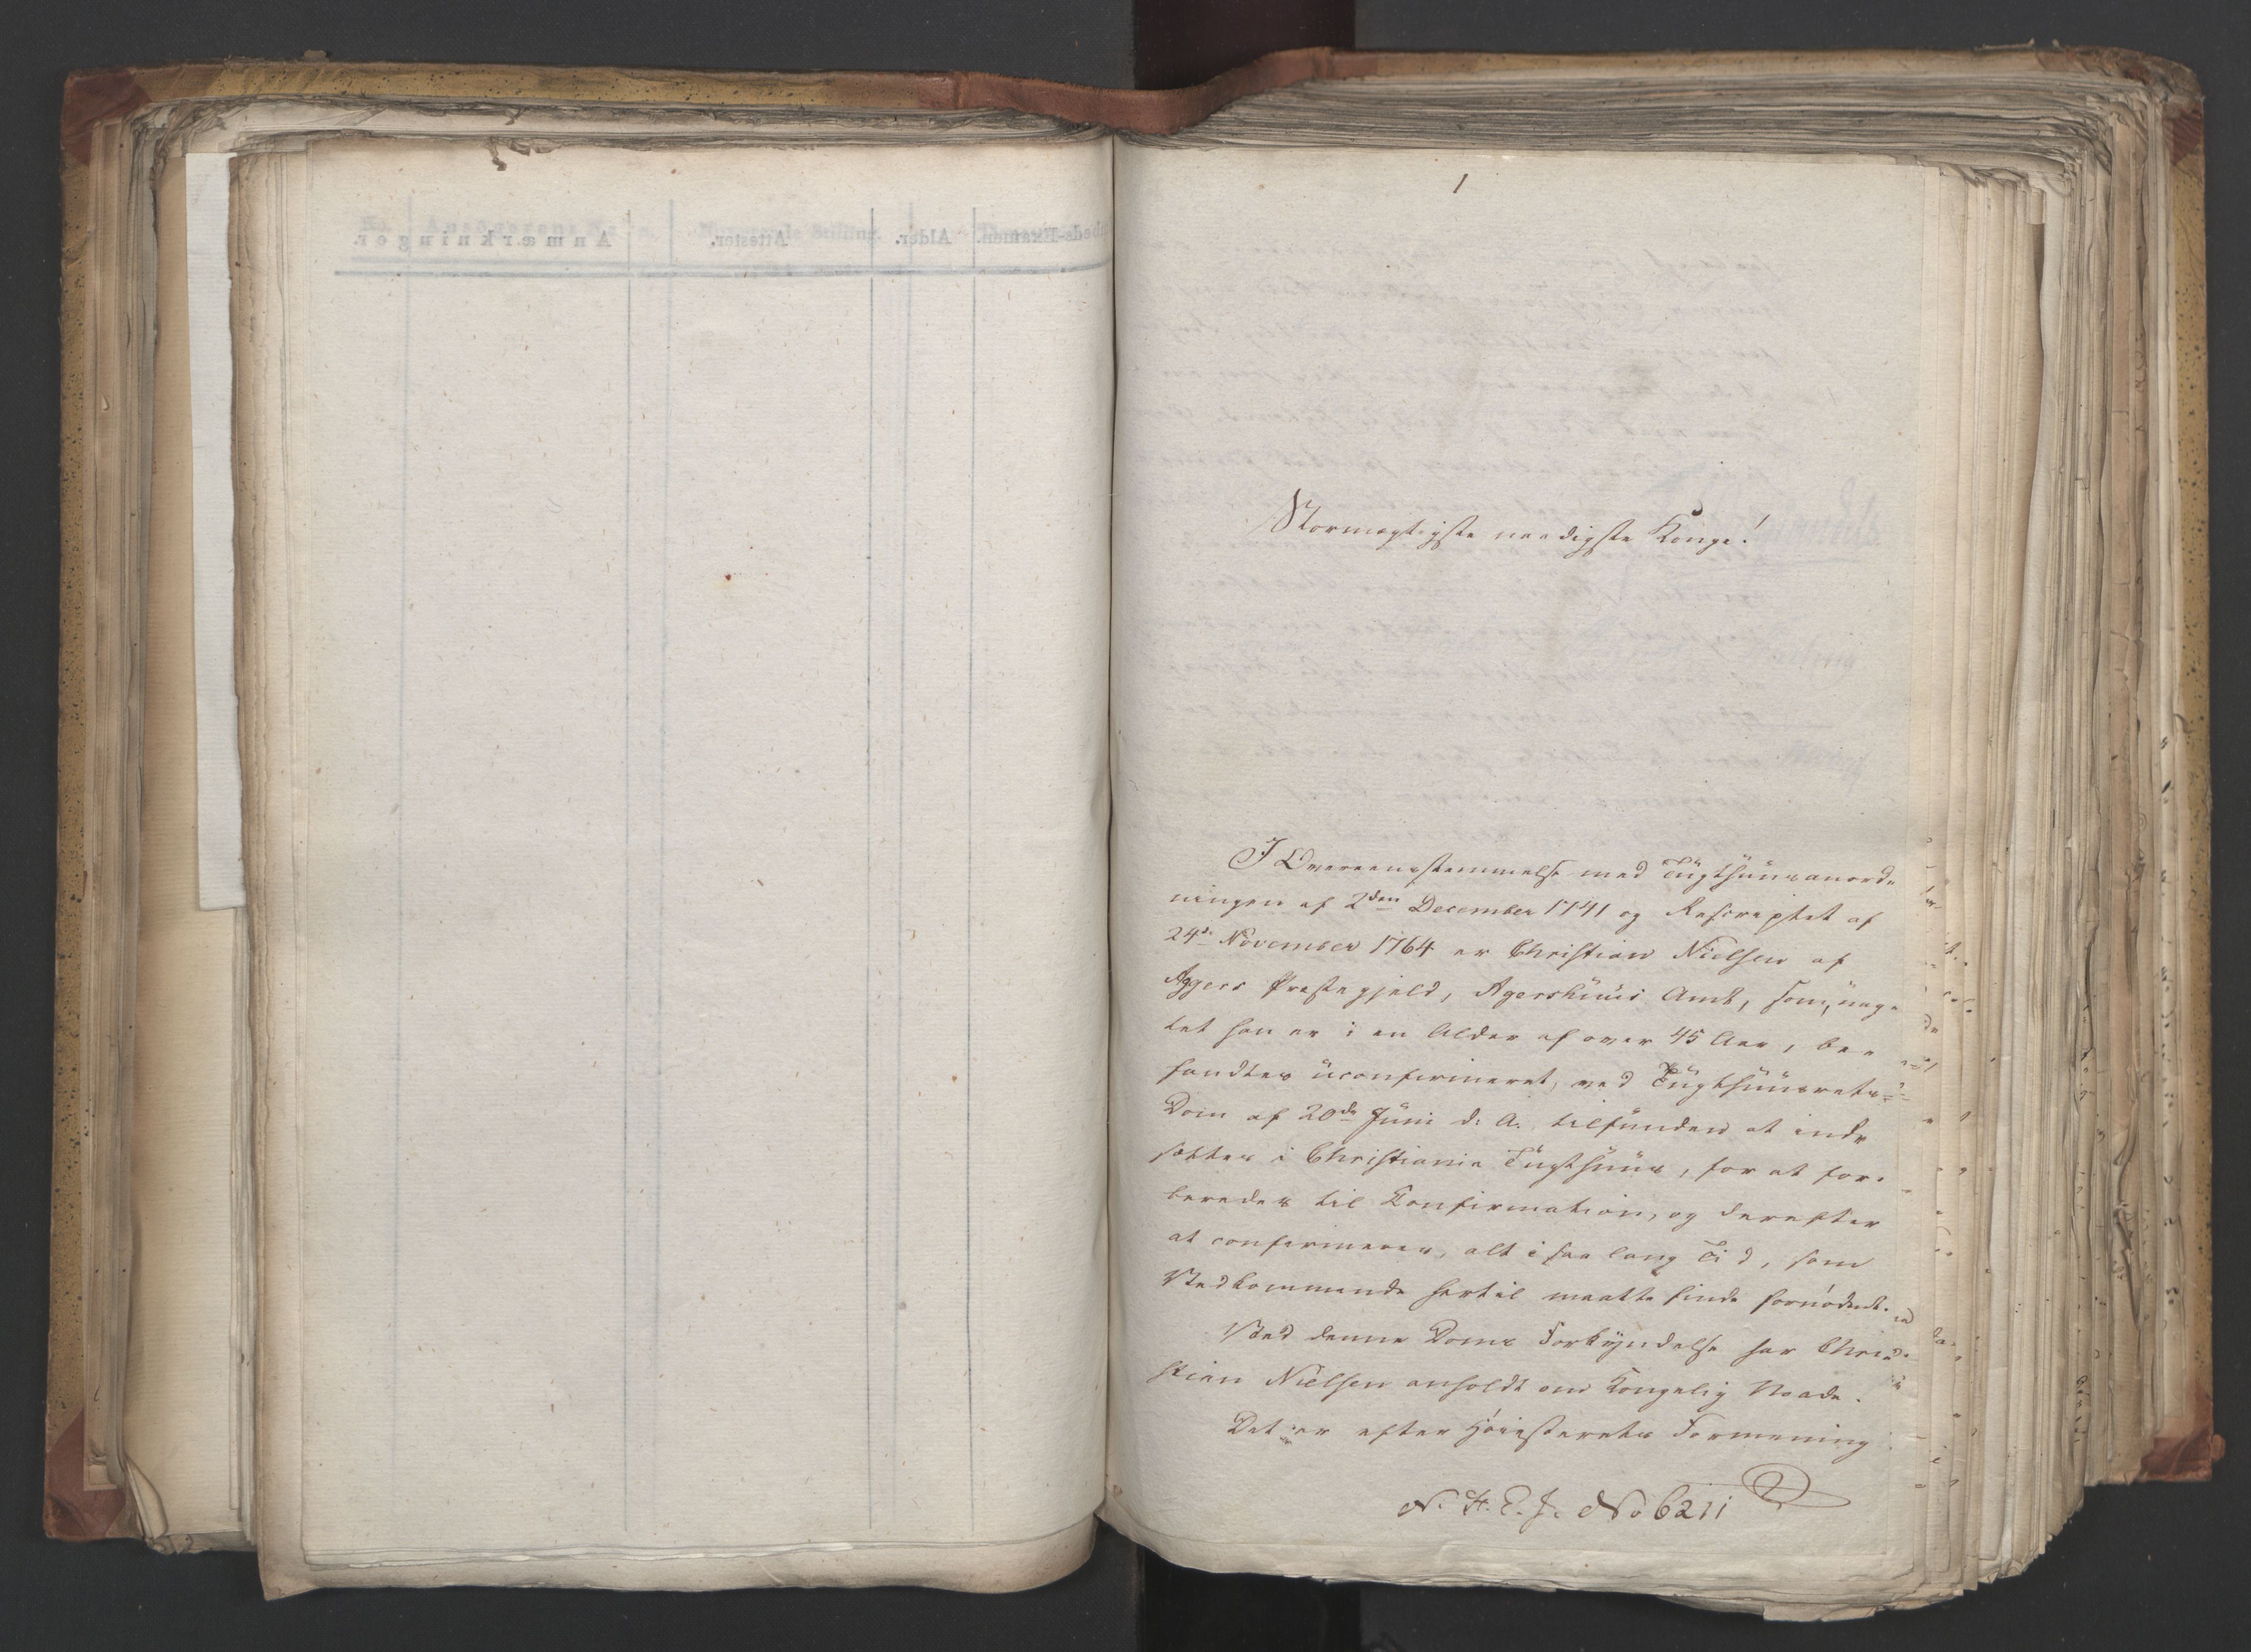 1
Stormægtigste naadigste Konge!
I Overeensstemmelse med Tugthuusanord-
ningen af 2den December 1741 og Rescriptet af
24de November 1764 er Christian Nielsen af
Aggers Præstegjeld, Agershuus Amt, som, uag-
tet han er i en Alder af over 45 Aar, be-
fandtes uconfirmeret, ved Tugthuusrets-
Dom af 20de Juni d. A. tilfunden at ind-
sættes i Christiania Tugthuus, for at for-
beredes til Confirmation, og derefter
at confirmeres, alt i saa lang Tid, som
Vedkommende hertil maatte finde fornødent.
Ved denne Doms Forkyndelse har Chri-
stian Nielsen anholdt om Kongelig Naade.
Det er efter Høiesterets Formening
No 6211
No. Ansøgerens Navn. Nuværende Stilling.
Anmærkninger. Attester. Alder. Examen.